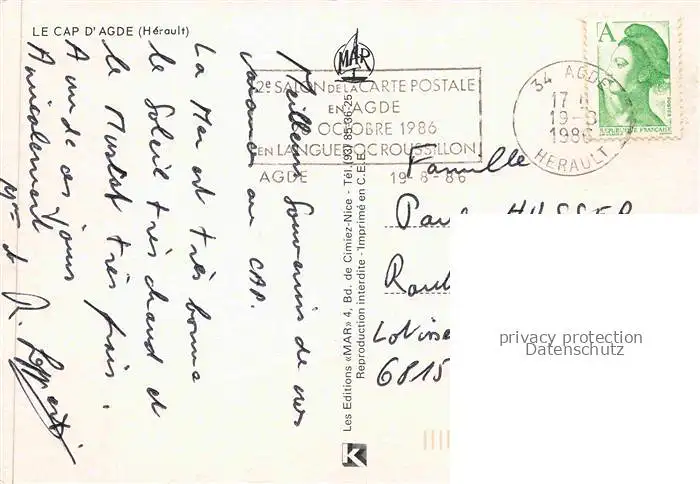 LE CAP D'AGDE (Hérault)
Meilleurs Souvenirs de nos
vacances au CAP.
La Mer est très bonne
le Soleil très chaud et
le Muscat très frais.
A un de ces jours
Amicalement
MAR
2e SALON DE LA CARTE POSTALE
EN AGDE
OCTOBRE 1986
EN LANGUEDOC ROUSSILLON
AGDE 19-8-86
34 AGDE
17 H
19-8
1986
HERAULT
A
REPUBLIQUE FRANCAISE
Famille
Paul HUSSER
Lotisse
6815
Les Editions «MAR» 4, Bd. de Cimiez-Nice - Tél. (93) 85-36-25
Reproduction interdite - Imprimé en C.E.E.
K
privacy protection
Datenschutz